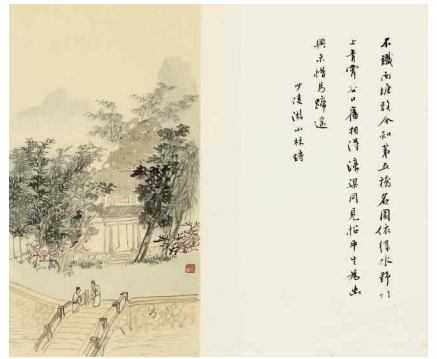 不識南塘路今知第五橋名園依綠水野竹
上青霄谷口舊相得濠梁同見招平生為幽
興未惜馬蹄遙
少陵游山林詩